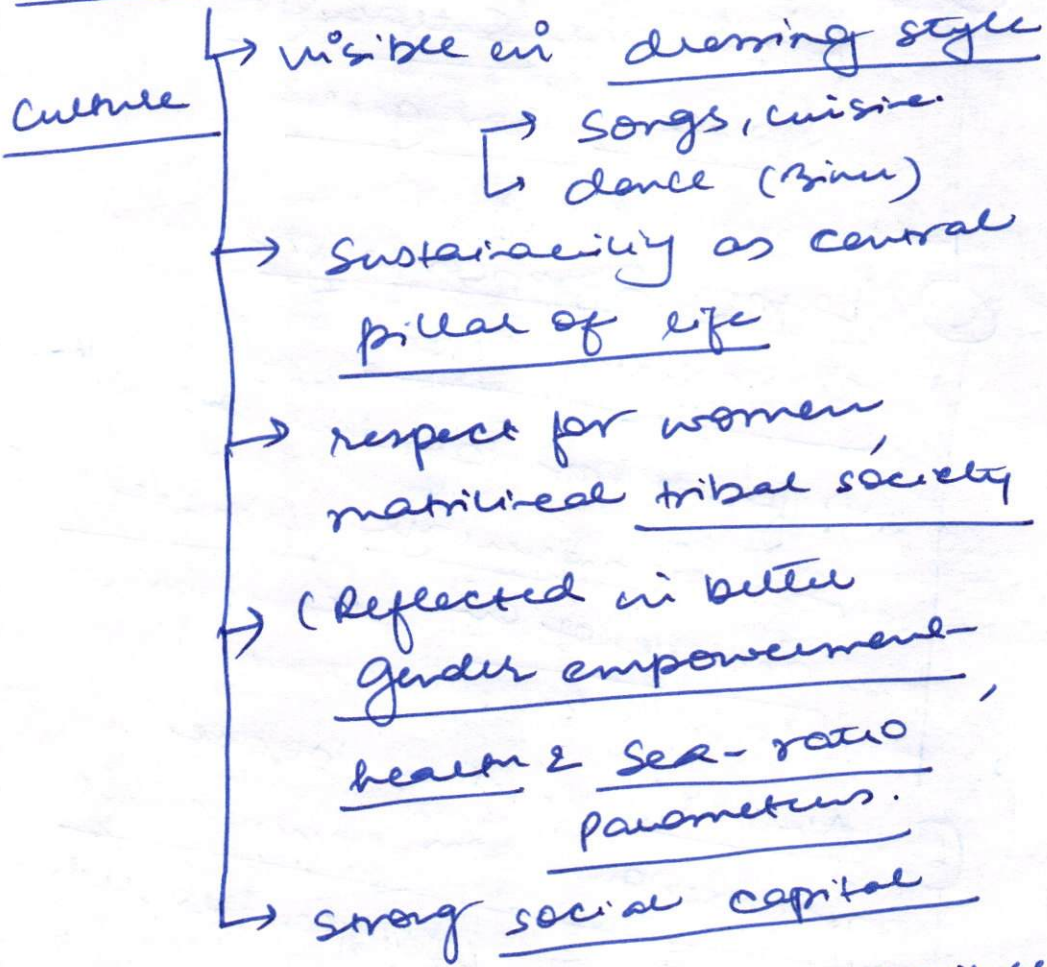 → visible in dressing style
Culture
→ songs, cuisine.
→ dance (Bihu)
→ Sustainability as central
pillar of life
→ respect for women,
matrilineal tribal society
→ (Reflected in better
gender empowerment,
health & Sex-ratio
parameters.
→ strong social capital